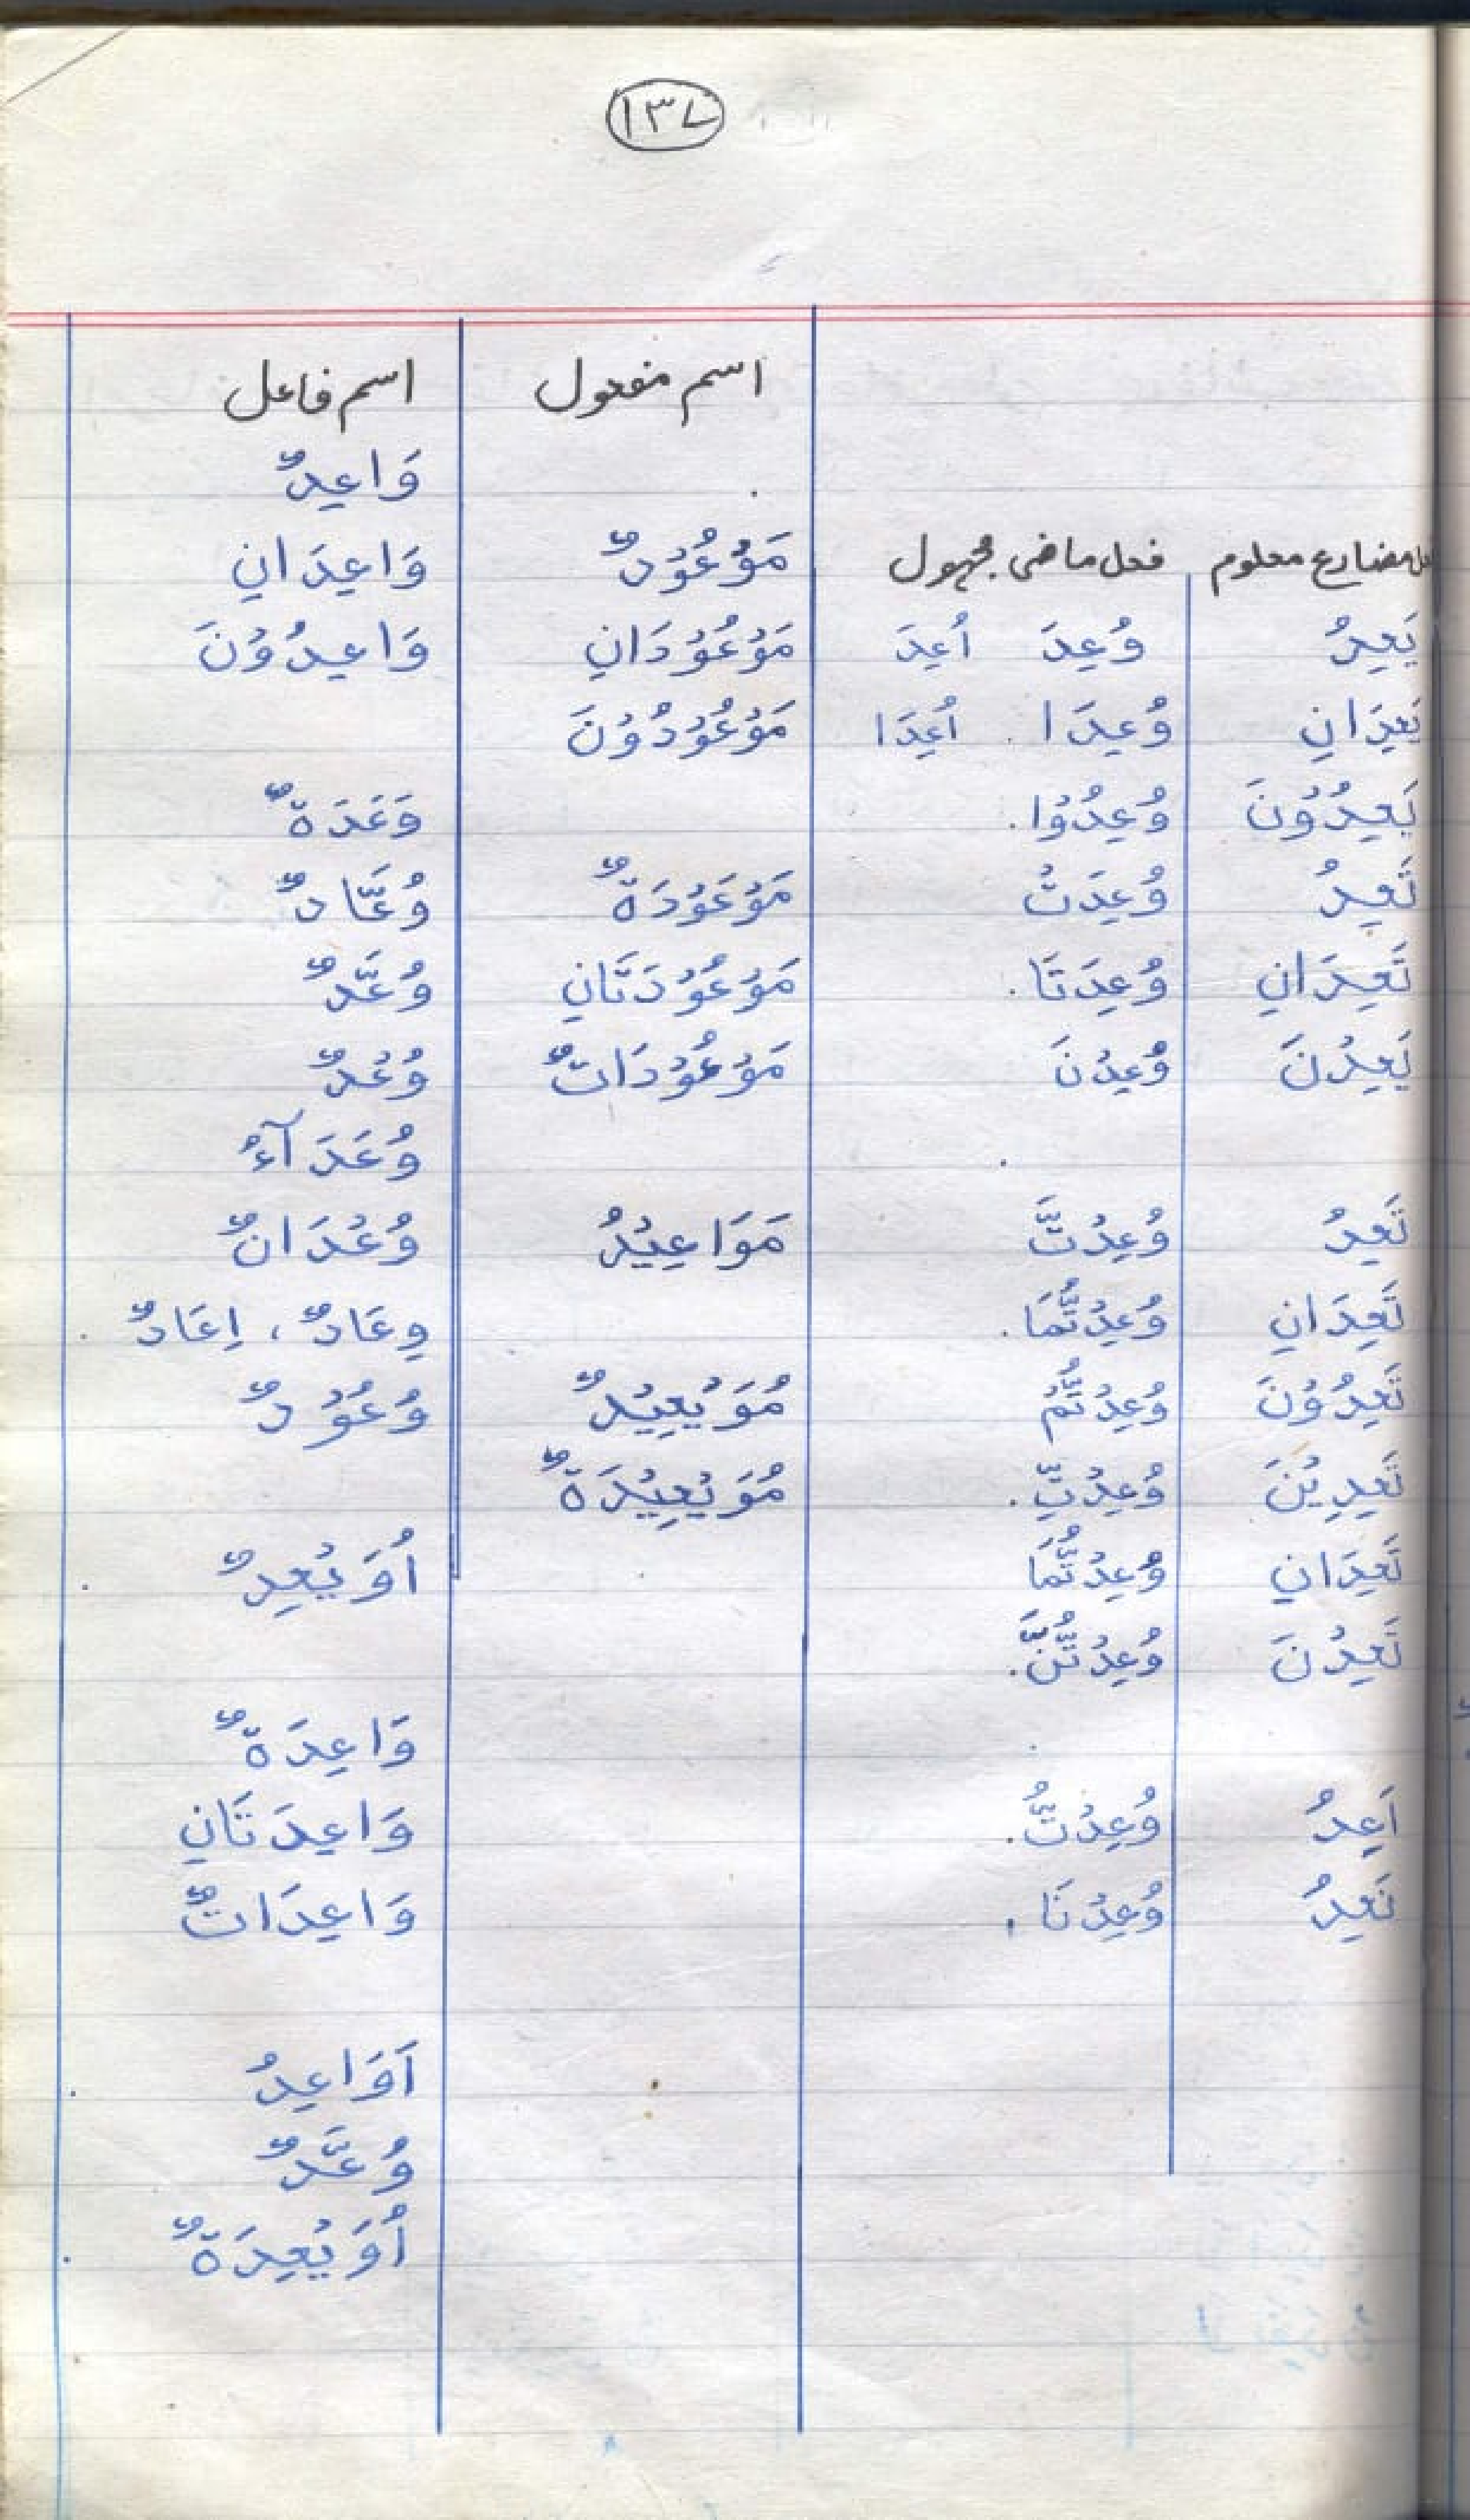 ١٣٧
اسم مفعول اسم فاعل
وَاعِدٌ
مضارع معلوم فعل ماضی مجہول مَوْعُوْدٌ وَاعِدَانِ
يَعِدُ وُعِدَ اُعِدَ مَوْعُوْدَانِ وَاعِدُوْنَ
يَعِدَانِ وُعِدَا اُعِدَا مَوْعُوْدُوْنَ
يَعِدُوْنَ وُعِدُوْا. وَعَدَةٌ
تَعِدُ وُعِدَتْ مَوْعَوْدَةٌ وُعَّادٌ
تَعِدَانِ وُعِدَتَا. مَوْعُوْدَتَانِ وُعَّدٌ
يَعِدْنَ وُعِدْنَ مَوْعُوْدَاتٌ وُعْدٌ
وُعَدَآءُ
تَعِدُ وُعِدْتَّ مَوَاعِيْدُ وُعْدَانٌ
تَعِدَانِ وُعِدْتُّمَا. وِعَادٌ ، اِعَادٌ
تَعِدُوْنَ وُعِدْتُّمْ مُوَيْعِيْدٌ وُعُوْدٌ
تَعِدِيْنَ وُعِدْتِّ. مُوَيْعِيْدَةٌ
تَعِدَانِ وُعِدْتُّمَا اُوَيْعِدٌ
تَعِدْنَ وُعِدْتُّنَّ.
وَاعِدَةٌ
اَعِدُ وُعِدْتُّ. وَاعِدَتَانِ
نَعِدُ وُعِدْنَا. وَاعِدَاتٌ
اَوَاعِدُ
وُعَّدٌ
اُوَيْعِدَةٌ